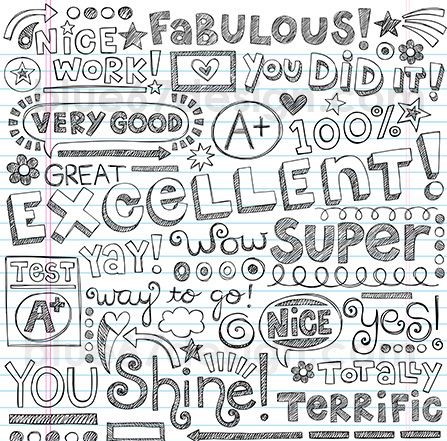 NiCE WORK!
FaBULOUS!
YOU DiD iT!
VERY GOOD
A+
100%
GREAT
ExcELLENT!
YAY!
WoW
SUPeR
TEST
A+
way to go!
NiCE
yes!
YOU Shine!
TOTaLLY
TeRRiFic